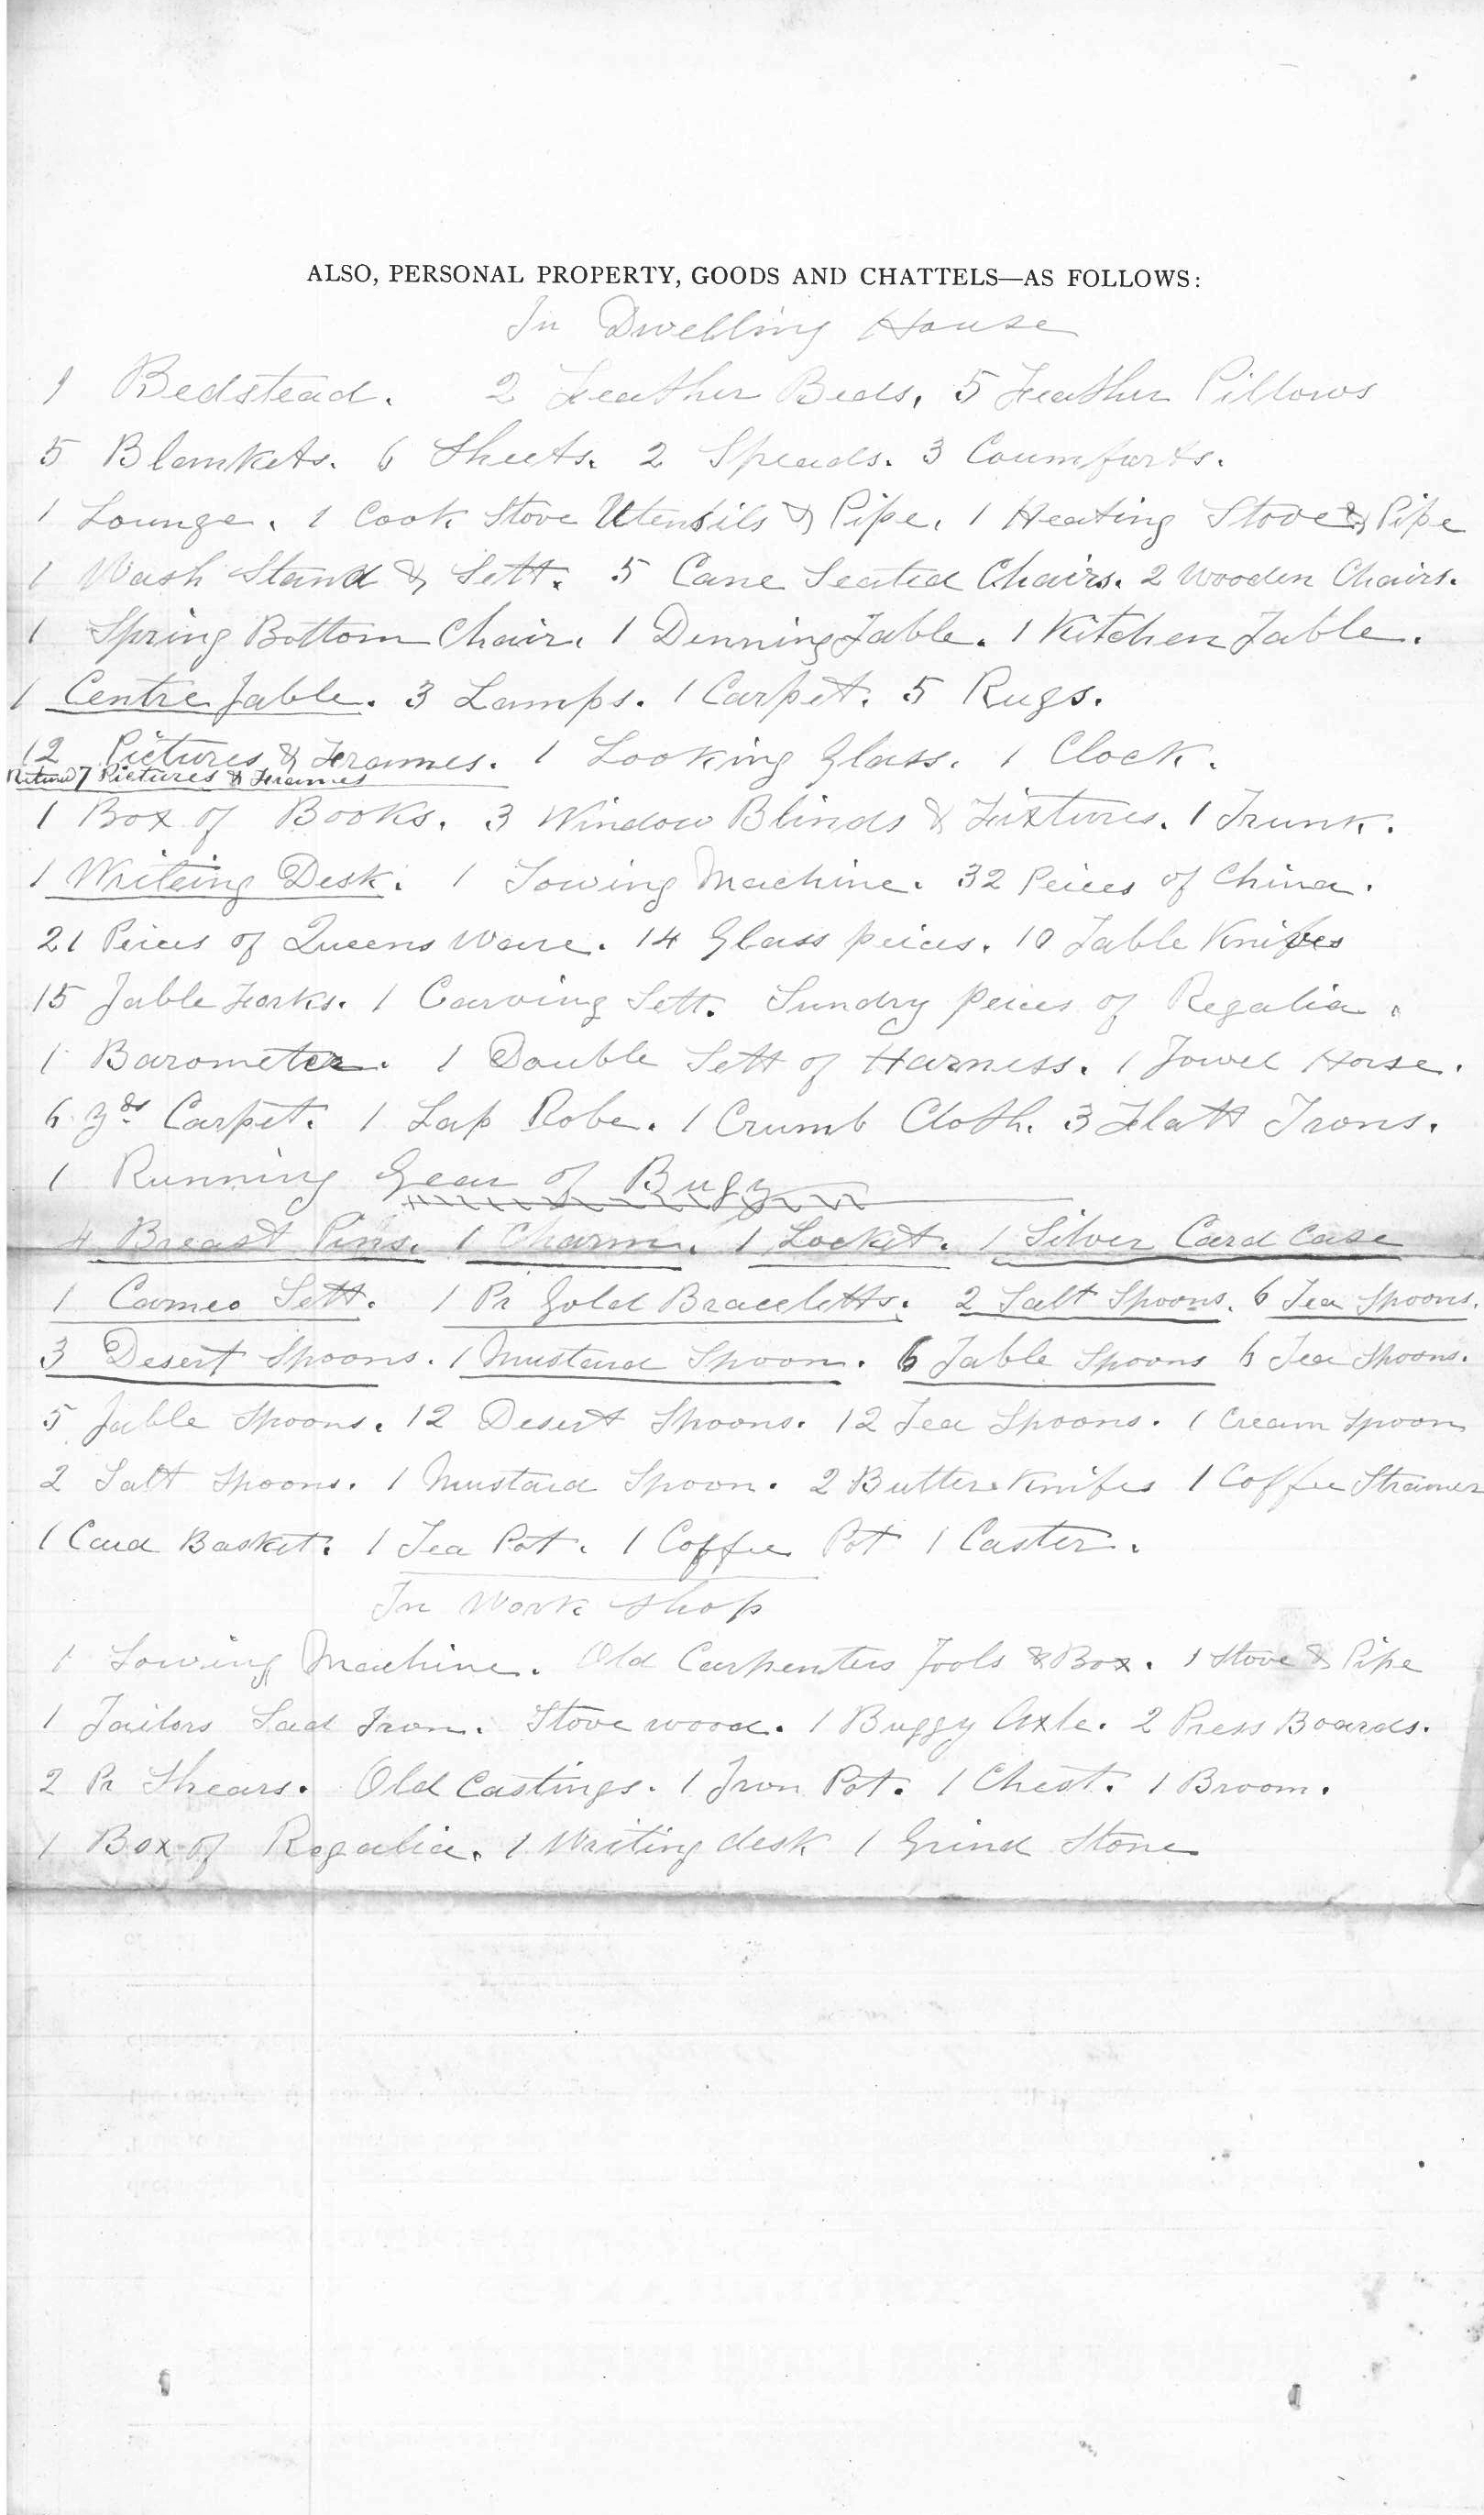 ALSO, PERSONAL PROPERTY, GOODS AND CHATTELS—AS FOLLOWS:
In Dwelling House
1 Bedstead. 2 Feather Beds, 5 Feather Pillows
5 Blankets. 6 Sheets. 2 Spreads. 3 Coumfarts.
1 Lounge. 1 Cook Stove Utensils & Pipe. 1 Heating Stove & Pipe
1 Wash Stand & Sett. 5 Cane Seated Chairs. 2 Wooden Chairs.
1 Spring Bottom Chair. 1 Denning Table. 1 Kitchen Table.
1 Centre Table. 3 Lamps. 1 Carpet. 5 Rugs.
12 Pictures & Frames. 1 Looking Glass. 1 Clock.
7 Pictures & Frames
1 Box of Books. 3 Window Blinds & Fixtures. 1 Trunk.
1 Writeing Desk. 1 Sowing Machine. 32 Peices of China.
21 Peices of Queens Ware. 14 Glass peices. 10 Table Knifes
15 Table Forks. 1 Carving Sett. Sundry peices of Regalia.
1 Barometer. 1 Double Sett of Harness. 1 Towel Horse.
6 Yds Carpet. 1 Lap Robe. 1 Crumb Cloth. 3 Flatt Irons.
1 Running Gear of Bugy
4 Breast Pins. 1 Charm. 1 Locket. 1 Silver Card Case
1 Cameo Sett. 1 Pr Gold Braceletts. 2 Salt Spoons. 6 Tea Spoons.
3 Desert Spoons. 1 Mustard Spoon. 6 Table Spoons 6 Tea Spoons.
5 Table Spoons. 12 Desert Spoons. 12 Tea Spoons. 1 Cream Spoon
2 Salt Spoons. 1 Mustard Spoon. 2 Butter Knifes 1 Coffee Strainer
1 Card Basket. 1 Tea Pot. 1 Coffee Pot 1 Caster.
In Work Shop
1 Sowing Machine. Old Carpenters Tools & Box. 1 Stove & Pipe
1 Tailors Sad Iron. Stove wood. 1 Buggy Axle. 2 Press Boards.
2 Pr Shears. Old Castings. 1 Iron Pot. 1 Chest. 1 Broom.
1 Box of Regalia. 1 Writing desk 1 Grind Stone